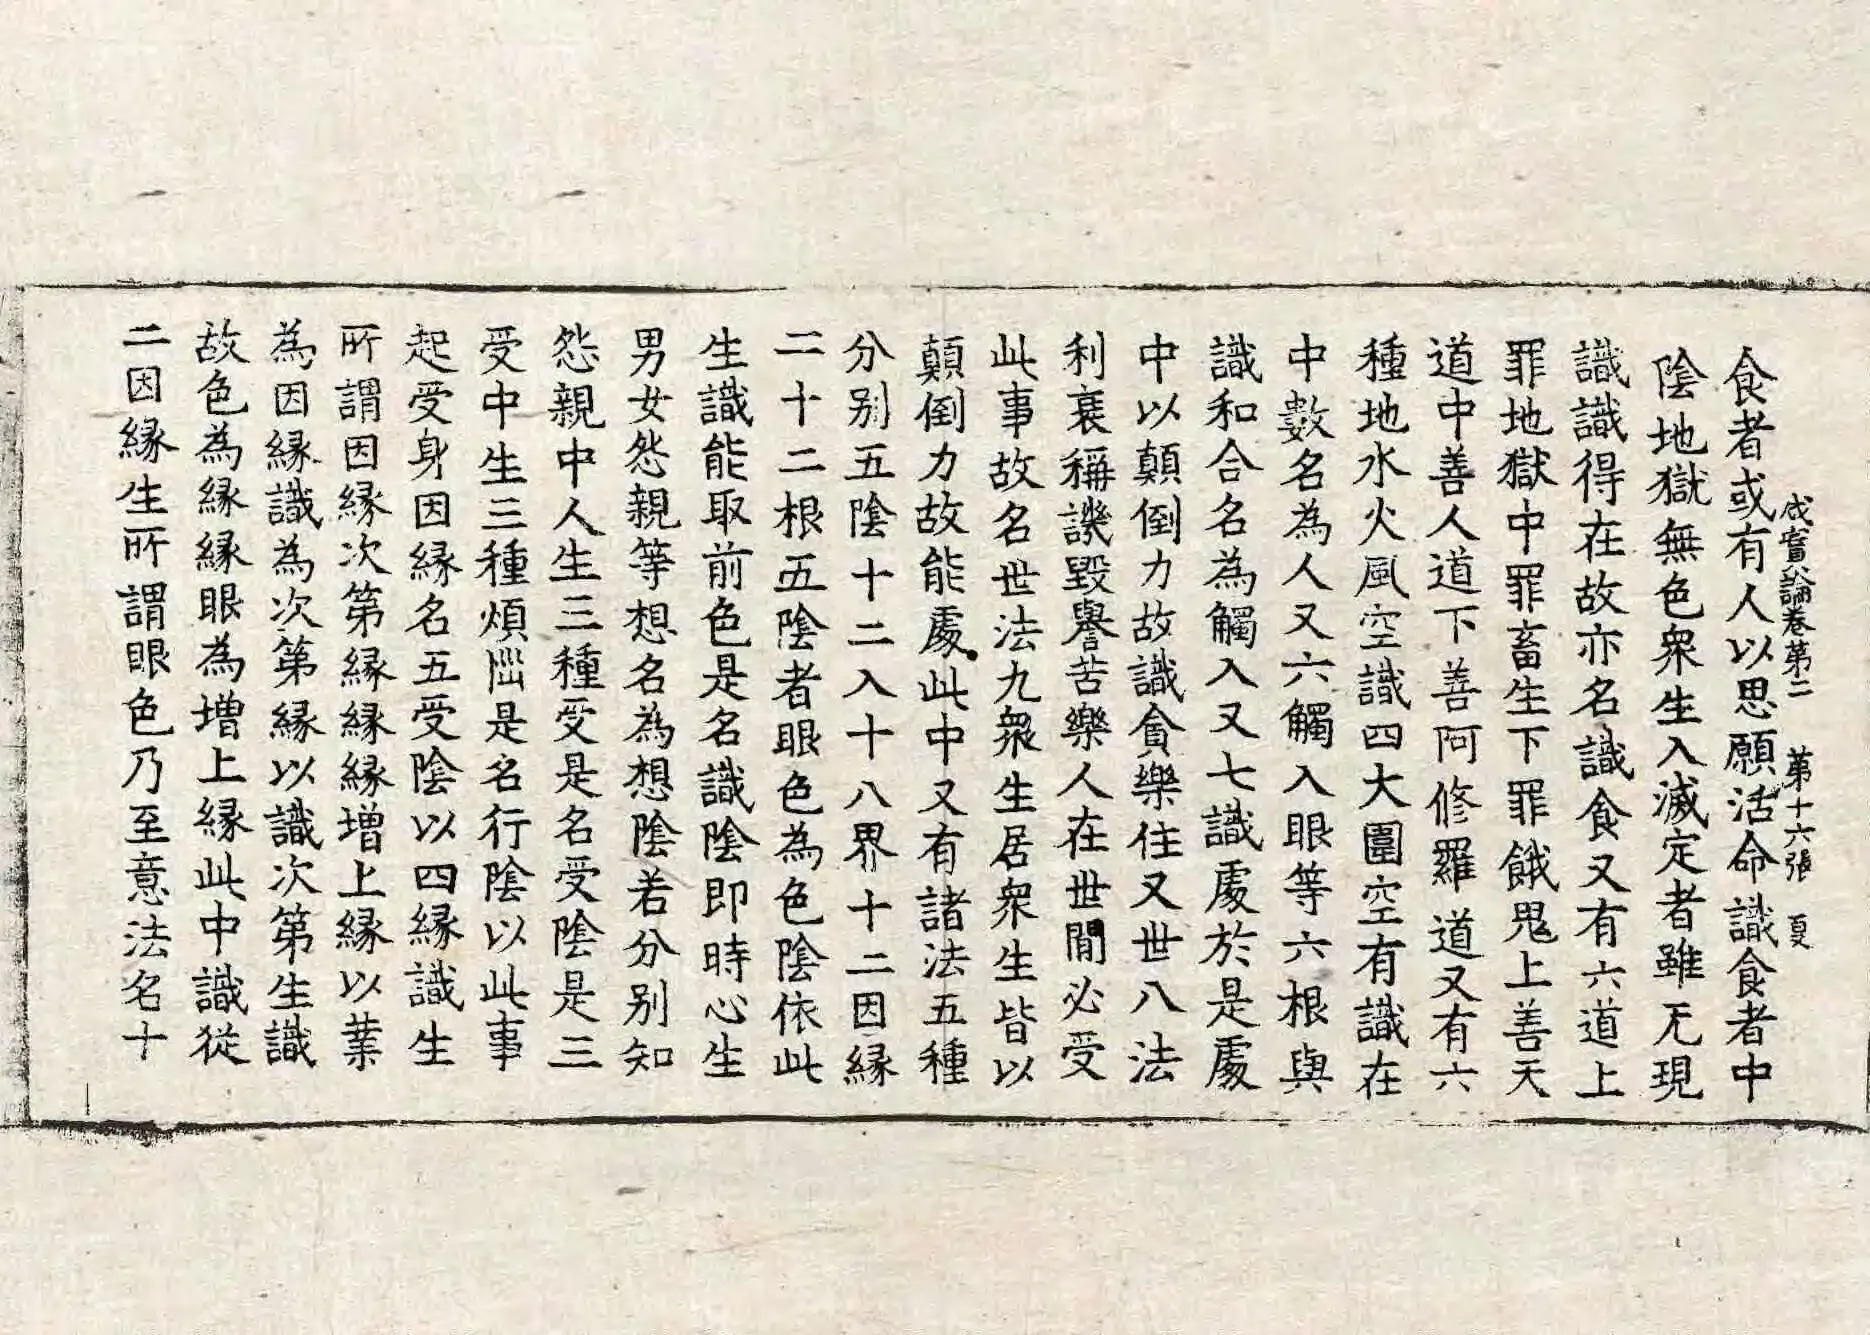 成實論卷第二　第十六張　夏
食者或有人以思願活命識食者中
陰地獄無色衆生入滅定者雖无現
識識得在故亦名識食又有六道上
罪地獄中罪畜生下罪餓鬼上善天
道中善人道下善阿修羅道又有六
種地水火風空識四大圍空有識在
中數名為人又六觸入眼等六根與
識和合名為觸入又七識處於是處
中以顛倒力故識貪樂住又世八法
利衰稱譏毀譽苦樂人在世間必受
此事故名世法九衆生居衆生皆以
顛倒力故能處此中又有諸法五種
分別五陰十二入十八界十二因緣
二十二根五陰者眼色為色陰依此
生識能取前色是名識陰即時心生
男女怨親等想名為想陰若分別知
怨親中人生三種受是名受陰是三
受中生三種煩惱是名行陰以此事
起受身因緣名五受陰以四緣識生
所謂因緣次第緣緣緣增上緣以業
為因緣識為次第緣以識次第生識
故色為緣緣眼為增上緣此中識從
二因緣生所謂眼色乃至意法名十